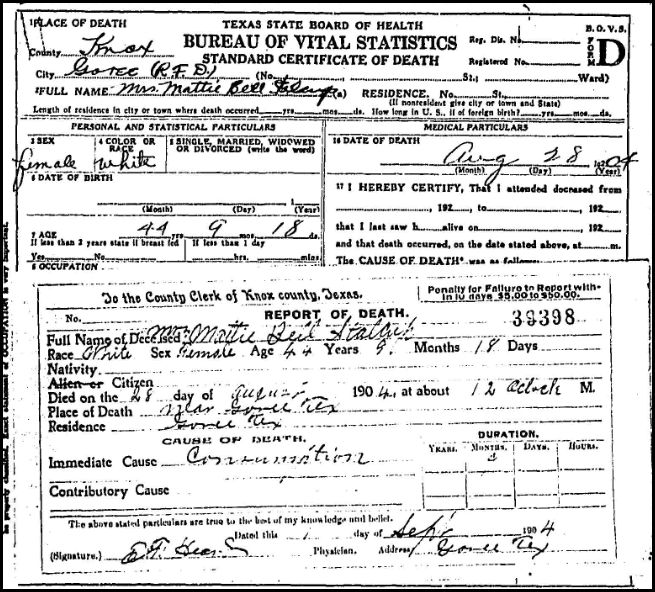 1 PLACE OF DEATH
TEXAS STATE BOARD OF HEALTH
BUREAU OF VITAL STATISTICS
STANDARD CERTIFICATE OF DEATH
Reg. Dis. No.
Registered No.
B. O. V. S.
FORM D
County Knox
City Goree (R.F.D.) (No. St.; Ward)
2 FULL NAME Mrs. Mattie Bell (a) RESIDENCE. No. St.,
(If nonresident give city or town and State)
Length of residence in city or town where death occurred yrs. mos. ds. How long in U. S., if of foreign birth? yrs. mos. ds.
PERSONAL AND STATISTICAL PARTICULARS
MEDICAL PARTICULARS
3 SEX
female
4 COLOR OR RACE
white
5 SINGLE, MARRIED, WIDOWED OR DIVORCED (write the word)
6 DATE OF BIRTH
(Month) (Day) (Year)
7 AGE 44 yrs. 9 mos. 18 ds.
If less than 2 years state if breast fed
If less than 1 day
Yes No hrs. mins.
8 OCCUPATION
16 DATE OF DEATH
Aug 28 1904
(Month) (Day) (Year)
17 I HEREBY CERTIFY, That I attended deceased from
, 192 to , 192
that I last saw h alive on , 192
and that death occurred, on the date stated above, at m.
The CAUSE OF DEATH* was as follows:
be properly classified. Exact statement of OCCUPATION is very important.
To the County Clerk of Knox county, Texas.
Penalty for Failure to Report within 10 days $5.00 to $50.00.
No.
REPORT OF DEATH.
39398
Full Name of Deceased Mrs Mattie Bell
Race White Sex Female Age 44 Years 9 Months 18 Days
Nativity
Alien or Citizen
Died on the 28 day of August 1904, at about 12 Oclock M.
Place of Death near Goree Tex
Residence Goree Tex
CAUSE OF DEATH.
DURATION.
YEARS. MONTHS. DAYS. HOURS.
Immediate Cause Consumtion
Contributory Cause
The above stated particulars are true to the best of my knowledge and belief.
Dated this 1 day of Sept 1904
(Signature.) Physician. Address Goree Tex